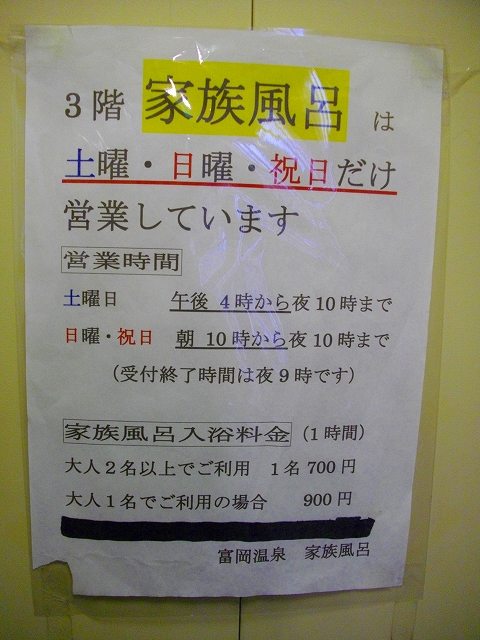 3階 家族風呂 は
土曜・日曜・祝日だけ
営業しています
営業時間
土曜日 午後 4時から夜10時まで
日曜・祝日 朝 10時から夜10時まで
（受付終了時間は夜9時です）
家族風呂入浴料金（1時間）
大人2名以上でご利用 1名700円
大人1名でご利用の場合 900円
富岡温泉 家族風呂